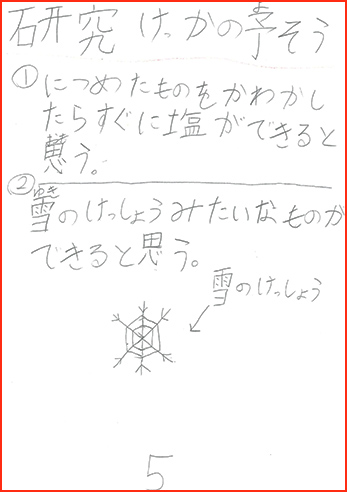 研究けっかの予そう
①につめたものをかわかし
たらすぐに塩ができると
思う。
②雪のけっしょうみたいなものが
ゆき
できると思う。
雪のけっしょう
5